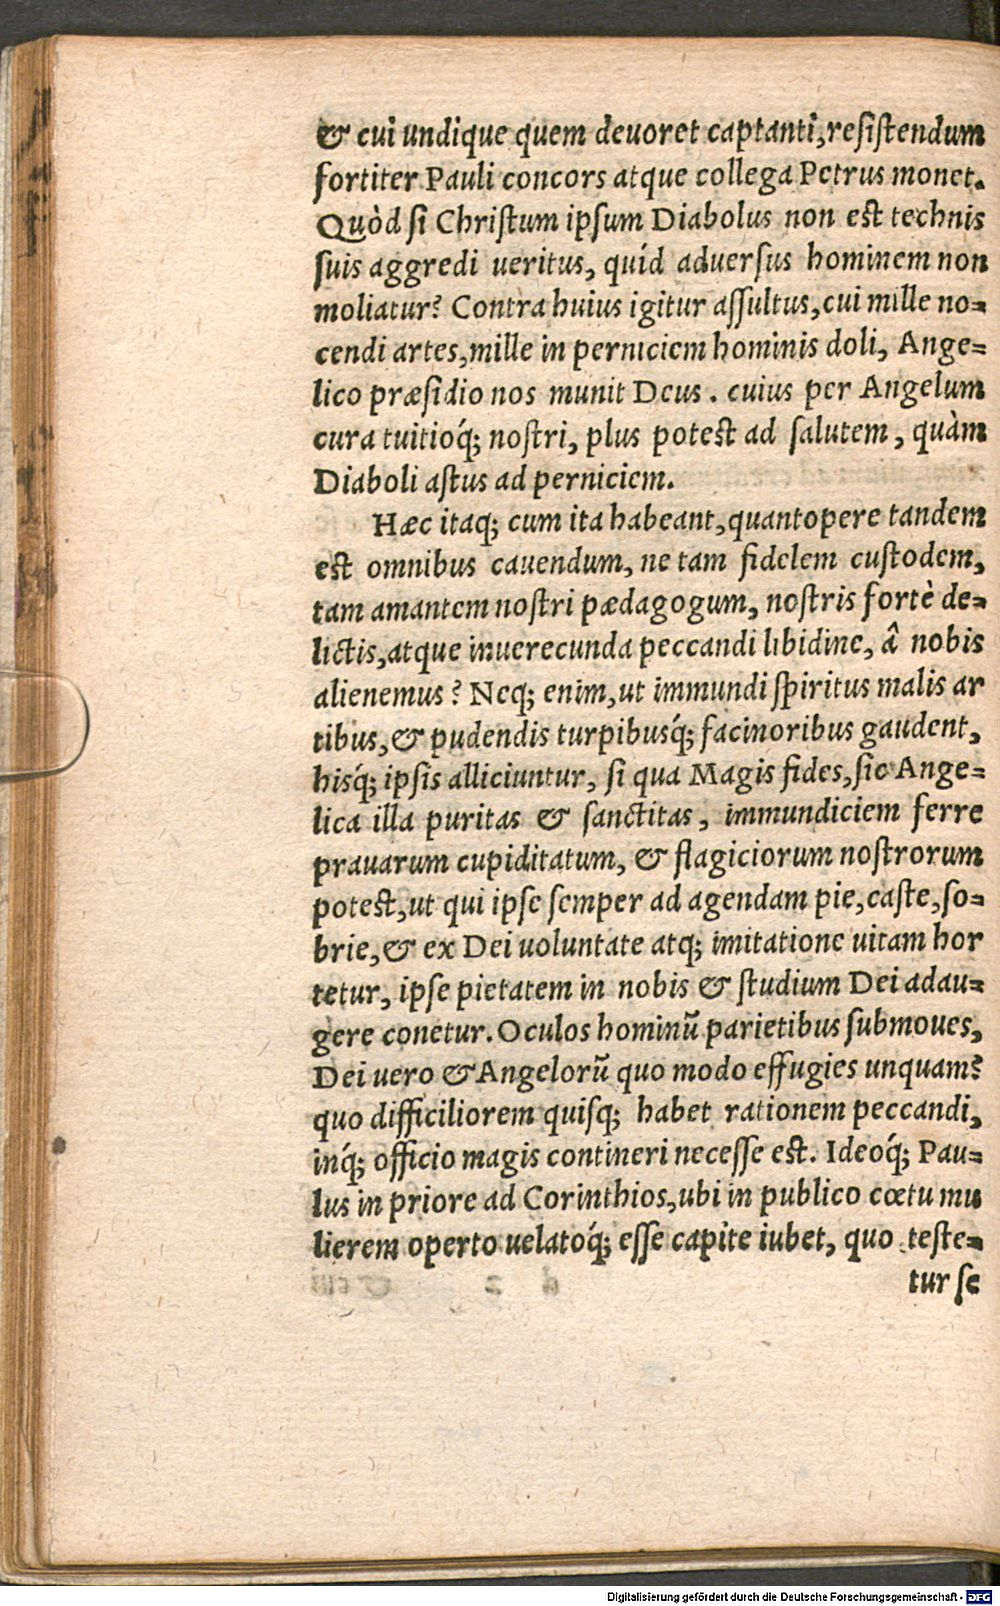 & cui undique quem devoret captanti, resistendum
fortiter Pauli concors atque collega Petrus monet.
Quòd si Christum ipsum Diabolus non est technis
suis aggredi ueritus, quid aduersus hominem non
moliatur? Contra huius igitur assultus, cui mille no=
cendi artes, mille in perniciem hominis doli, Ange=
lico præsidio nos munit Deus. cuius per Angelum
cura tuitioq́; nostri, plus potest ad salutem, quàm
Diaboli astus ad perniciem.
Hæc itaq; cum ita habeant, quantopere tandem
est omnibus cauendum, ne tam fidelem custodem,
tam amantem nostri pædagogum, nostris fortè de=
lictis, atque inuerecunda peccandi libidine, â nobis
alienemus? Neq; enim, ut immundi spiritus malis ar
tibus, & pudendis turpibusq́; facinoribus gaudent,
hisq́; ipsis alliciuntur, si qua Magis fides, sic Ange=
lica illa puritas & sanctitas, immundiciem ferre
prauarum cupiditatum, & flagiciorum nostrorum
potest, ut qui ipse semper ad agendam pie, caste, so=
brie, & ex Dei uoluntate atq; imitatione uitam hor
tetur, ipse pietatem in nobis & studium Dei adau=
gere conetur. Oculos hominũ parietibus submoues,
Dei uero & Angelorũ quo modo effugies unquam?
quo difficiliorem quisq; habet rationem peccandi,
inq́; officio magis contineri necesse est. Ideoq́; Pau=
lus in priore ad Corinthios, ubi in publico cœtu mu
lierem operto uelatoq́; esse capite iubet, quo teste=
tur se
Digitalisierung gefördert durch die Deutsche Forschungsgemeinschaft - DFG